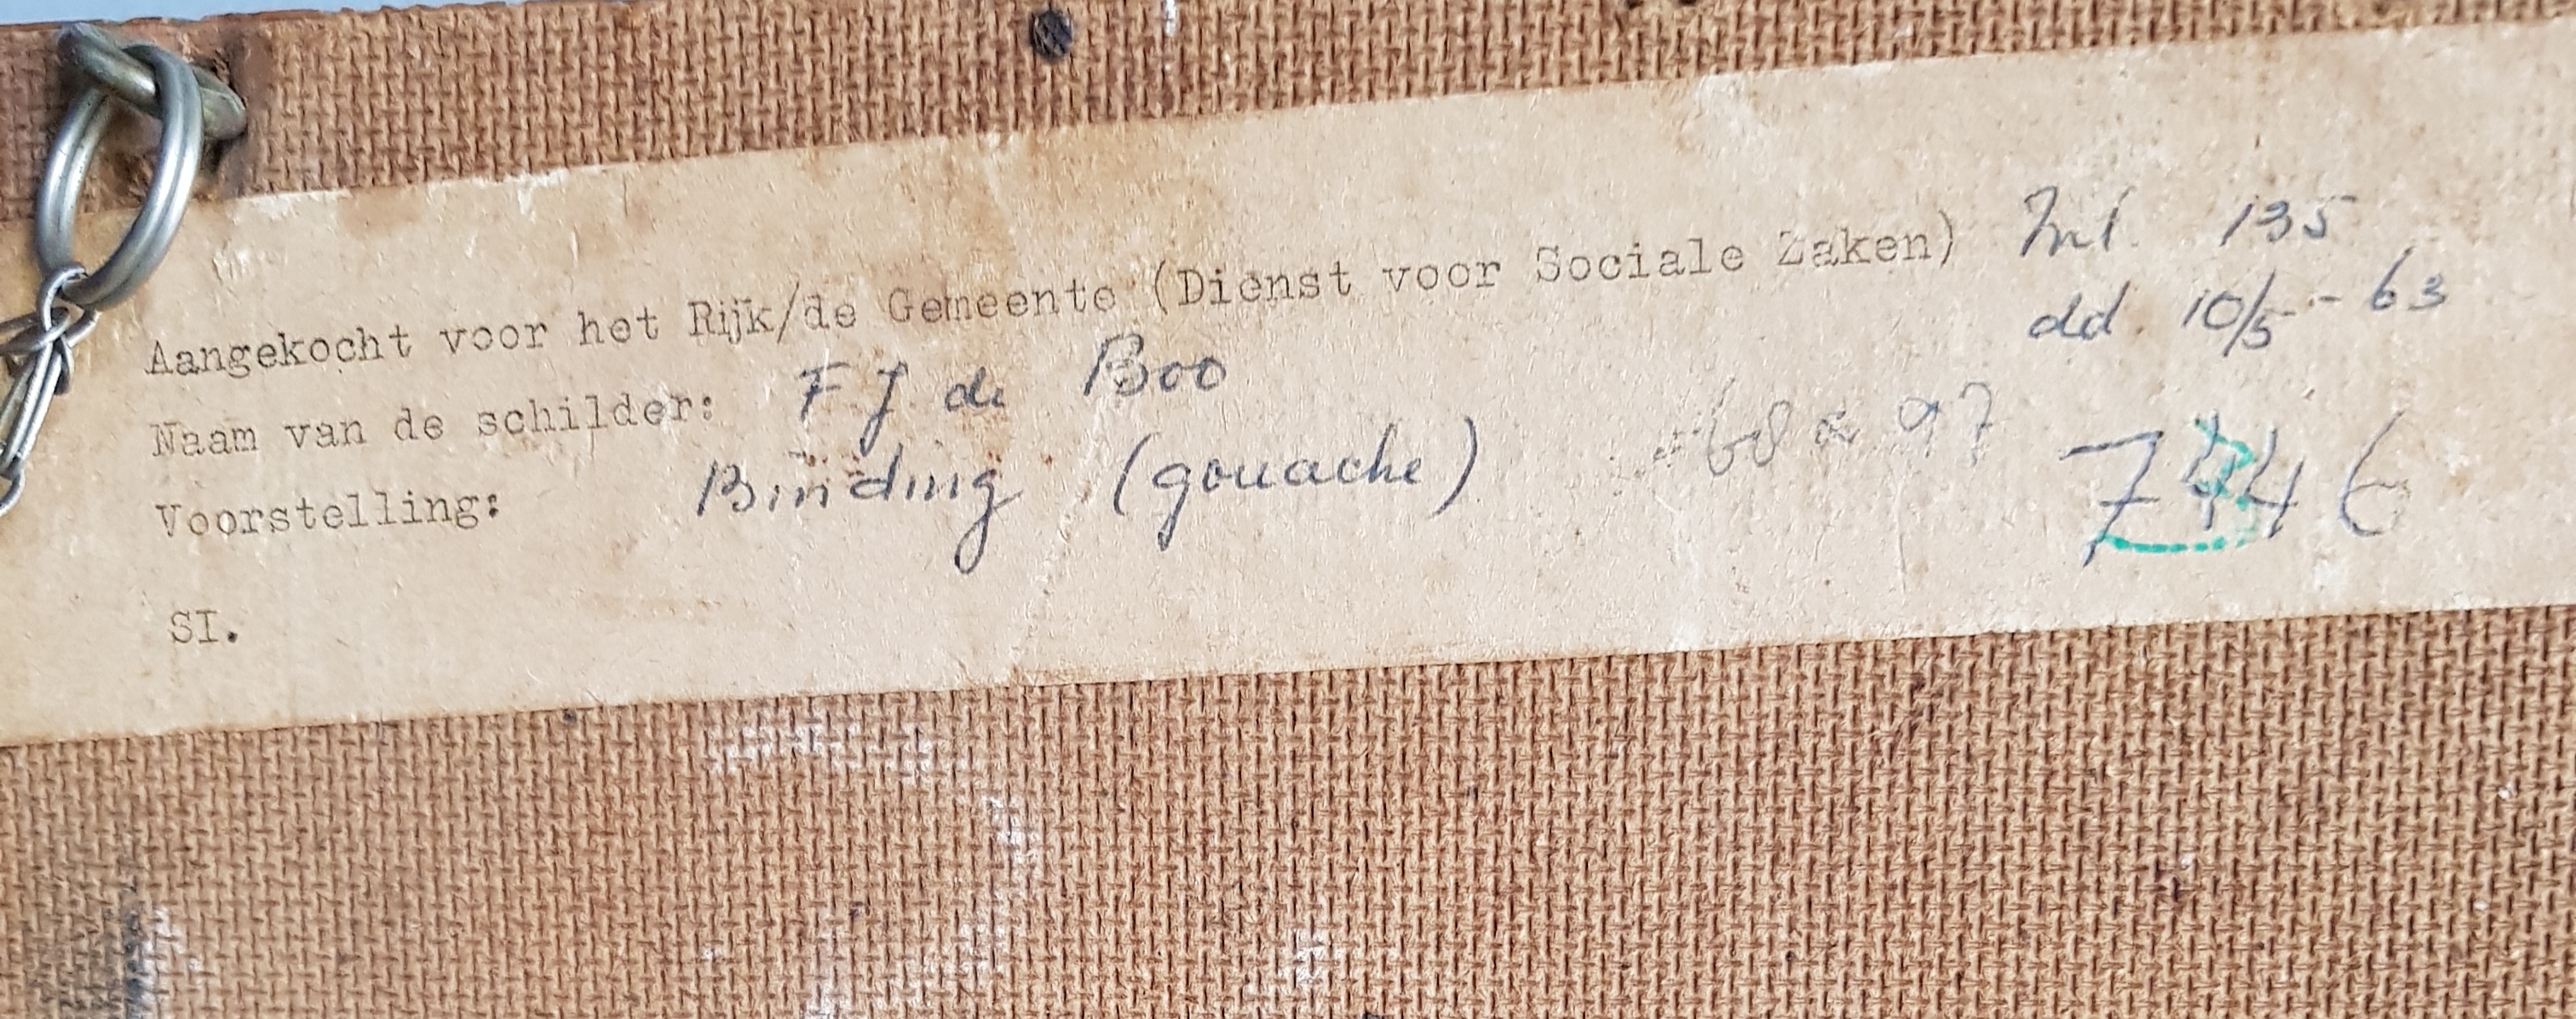 Aangekocht voor het Rijk/de Gemeente (Dienst voor Sociale Zaken) Inl. 135
dd. 10/5 - 63
Naam van de schilder: F J de Boo
68 x 97
Voorstelling: Binding (gouache)
7446
SI.